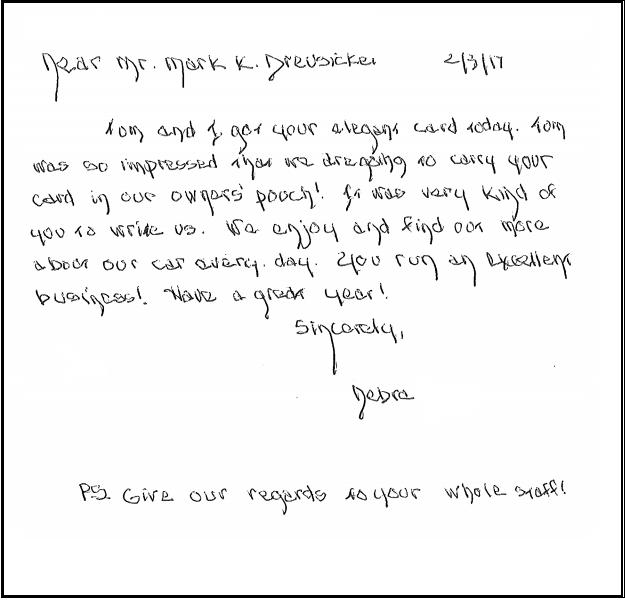 Dear Mr. Mark K. Dreusicker 2/3/17
Tom and I got your elegant card today. Tom
was so impressed that we are going to carry your
card in our owners' pouch! It was very kind of
you to write us. We enjoy and find out more
about our car every day. You run an excellent
business! Have a great year!
Sincerely,
Debra
PS. Give our regards to your whole staff!